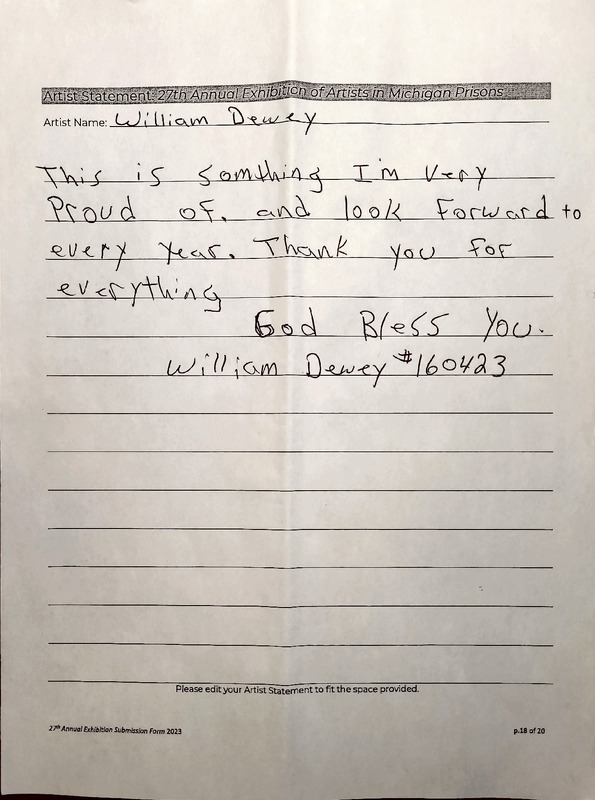 Artist Statement: 27th Annual Exhibition of Artists in Michigan Prisons
Artist Name: William Dewey
This is somthing I'm very
Proud of. and look Forward to
every year. Thank you for
everything
God Bless You.
William Dewey #160423
Please edit your Artist Statement to fit the space provided.
27th Annual Exhibition Submission Form 2023 p.18 of 20